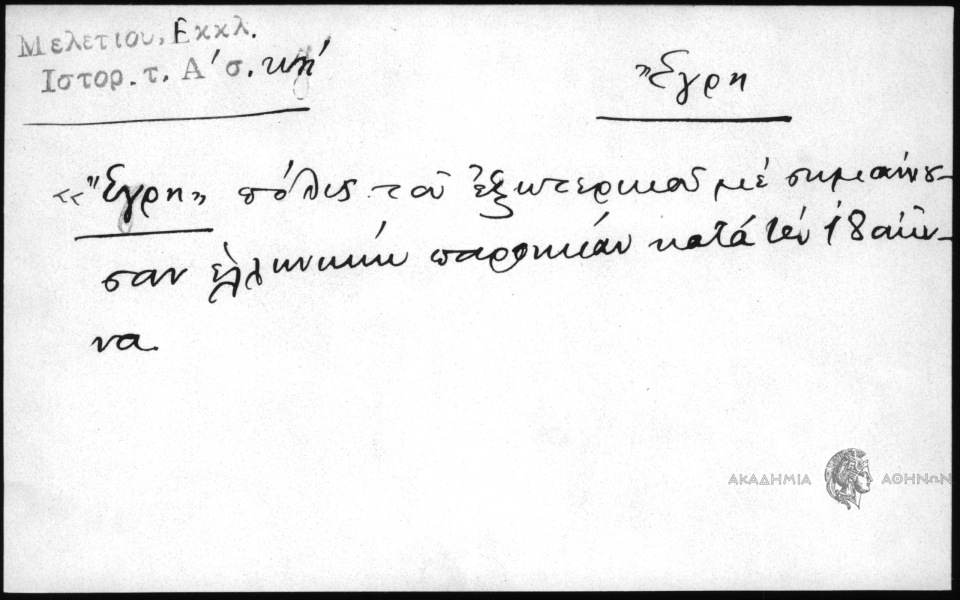 Μελετίου, Εκκλ.
Ιστορ. τ. Α' σ. κη'
Ἔγρη
«Ἔγρη» πόλις τοῦ ἐξωτερικοῦ μέ σημαίνου-
σαν ἑλληνικήν παροικίαν κατά τόν 18 αἰῶ-
να.
ΑΚΑΔΗΜΙΑ ΑΘΗΝΩΝ